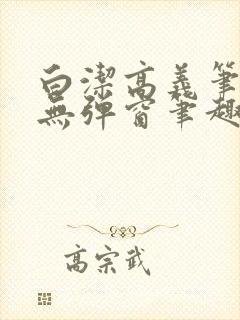 白潔高義筆
無彈窗筆趣
高宗武